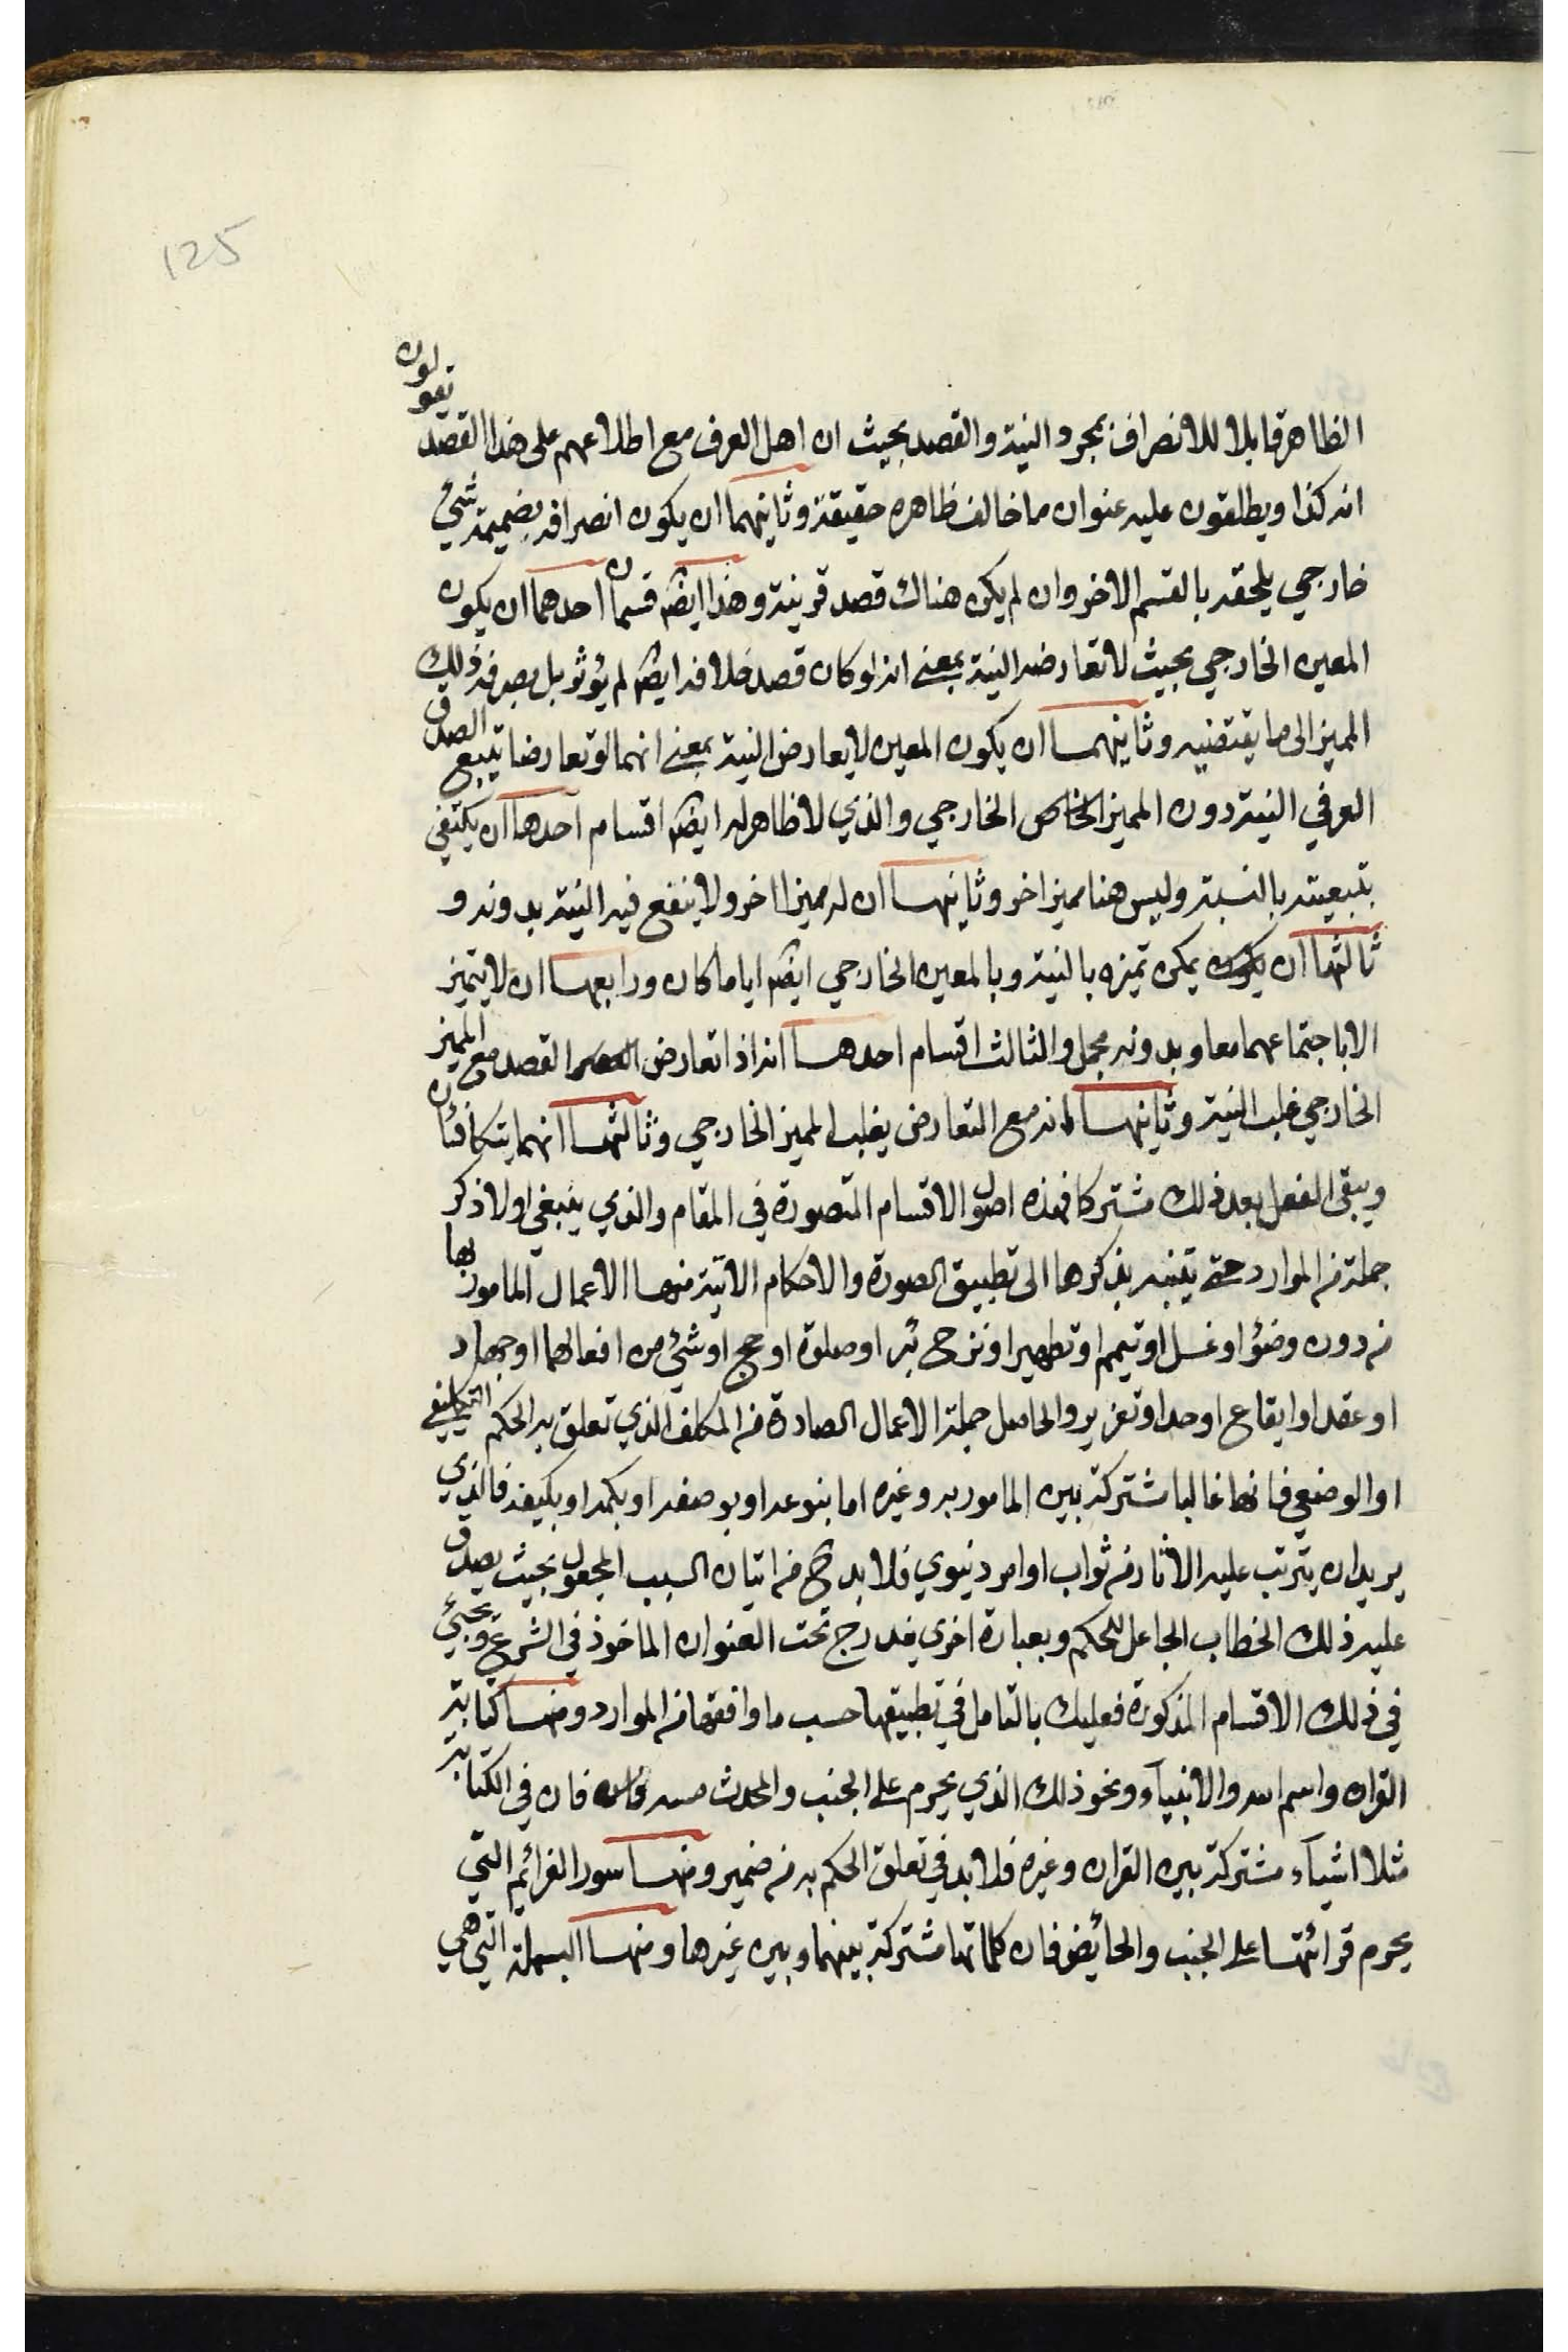 125
الظاهر قابلا للانصراف بمجرد النية والقصد بحيث ان اهل العرف مع اطلاعهم على هذا القصد يقولون
انه كذا ويطلقون عليه عنوان ما خالف ظاهره حقيقة وثانيهما ان يكون انصرافه بضميمة شيء
خارجي يلحقه بالقسم الاخر وان لم يكن هناك قصد قرينة وهذا ايضا قسمان احدهما ان يكون
المعين الخارجي بحيث لا تعارضه النية بمعنى انه لو كان قصد خلافه ايضا لم يؤثر بل يصرفه ذلك
المميز الى ما يقتضيه وثانيهما ان يكون المعين لا يعارض النية بمعنى انهما لو تعارضا يتبع الصدق
العرفي النية دون المميز الخاص الخارجي والذي لا ظاهر له ايضا اقسام احدها ان يكتفى
بتبعيته بالنسبة وليس هنا مميز اخر وثانيها ان له مميزا اخر ولا ينفع فيه النية بدونه و
ثالثها ان يكون يمكن تميزه بالنية وبالمعين الخارجي ايضا اياما كان ورابعها ان لا يتميز
الا باجتماعهما معا وبدونه مجمل والثالث اقسام احدها انه اذا تعارض القصد مع المميز
الخارجي غلب النية وثانيها انه مع التعارض يغلب المميز الخارجي وثالثها انهما يتكافئان
ويبقى الفعل بعد ذلك مشتركا فهذه اصول الاقسام المتصورة في المقام والذي ينبغي اولا ذكر
جملة من الموارد حتى يتنبه بذكرها الى تطبيق الصورة والاحكام الاتية منها الاعمال المامور بها
من دون وضؤ او غسل او تيمم او تطهير او نزح بئر او صلوة او حج او شئ من افعالهما او جهاد
او عقد او ايقاع او حد او تعزير والحاصل جملة الاعمال الصادرة من المكلف الذي تعلق به الحكم التكليفي
او الوضعي فانها غالبا مشتركة بين المامور به وغيره اما بنوعه او بوصفه او بكمه او بكيفه فالذي
يريد ان يترتب عليه الاثار من ثواب او امر دنيوي فلا بد ح من اتيان السبب المجعول بحيث يصدق
عليه ذلك الخطاب الجاعل للحكم وبعبارة اخرى يندرج تحت العنوان الماخوذ في الشرع ويجئ
في ذلك الاقسام المذكورة فعليك بالتامل في تطبيقها حسب ما وافقها من الموارد ومنها كتابة
القران واسم الله والانبياء ونحو ذلك الذي يحرم على الجنب والمحدث مسه فان في الكتابة
مثلا اشياء مشتركة بين القران وغيره فلا بد في تعلق الحكم به من ضمير ومنها سور العزائم التي
يحرم قرائتها على الجنب والحائض فان كلماتها مشتركة بينهما وبين غيرها ومنها البسملة التي هي